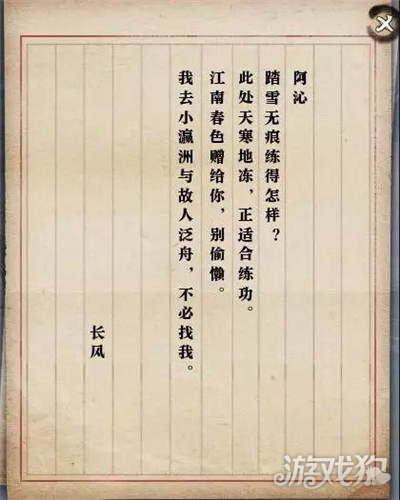 阿沁
踏雪无痕练得怎样？
此处天寒地冻，正适合练功。
江南春色赠给你，别偷懒。
我去小瀛洲与故人泛舟，不必找我。
长风
游戏狗